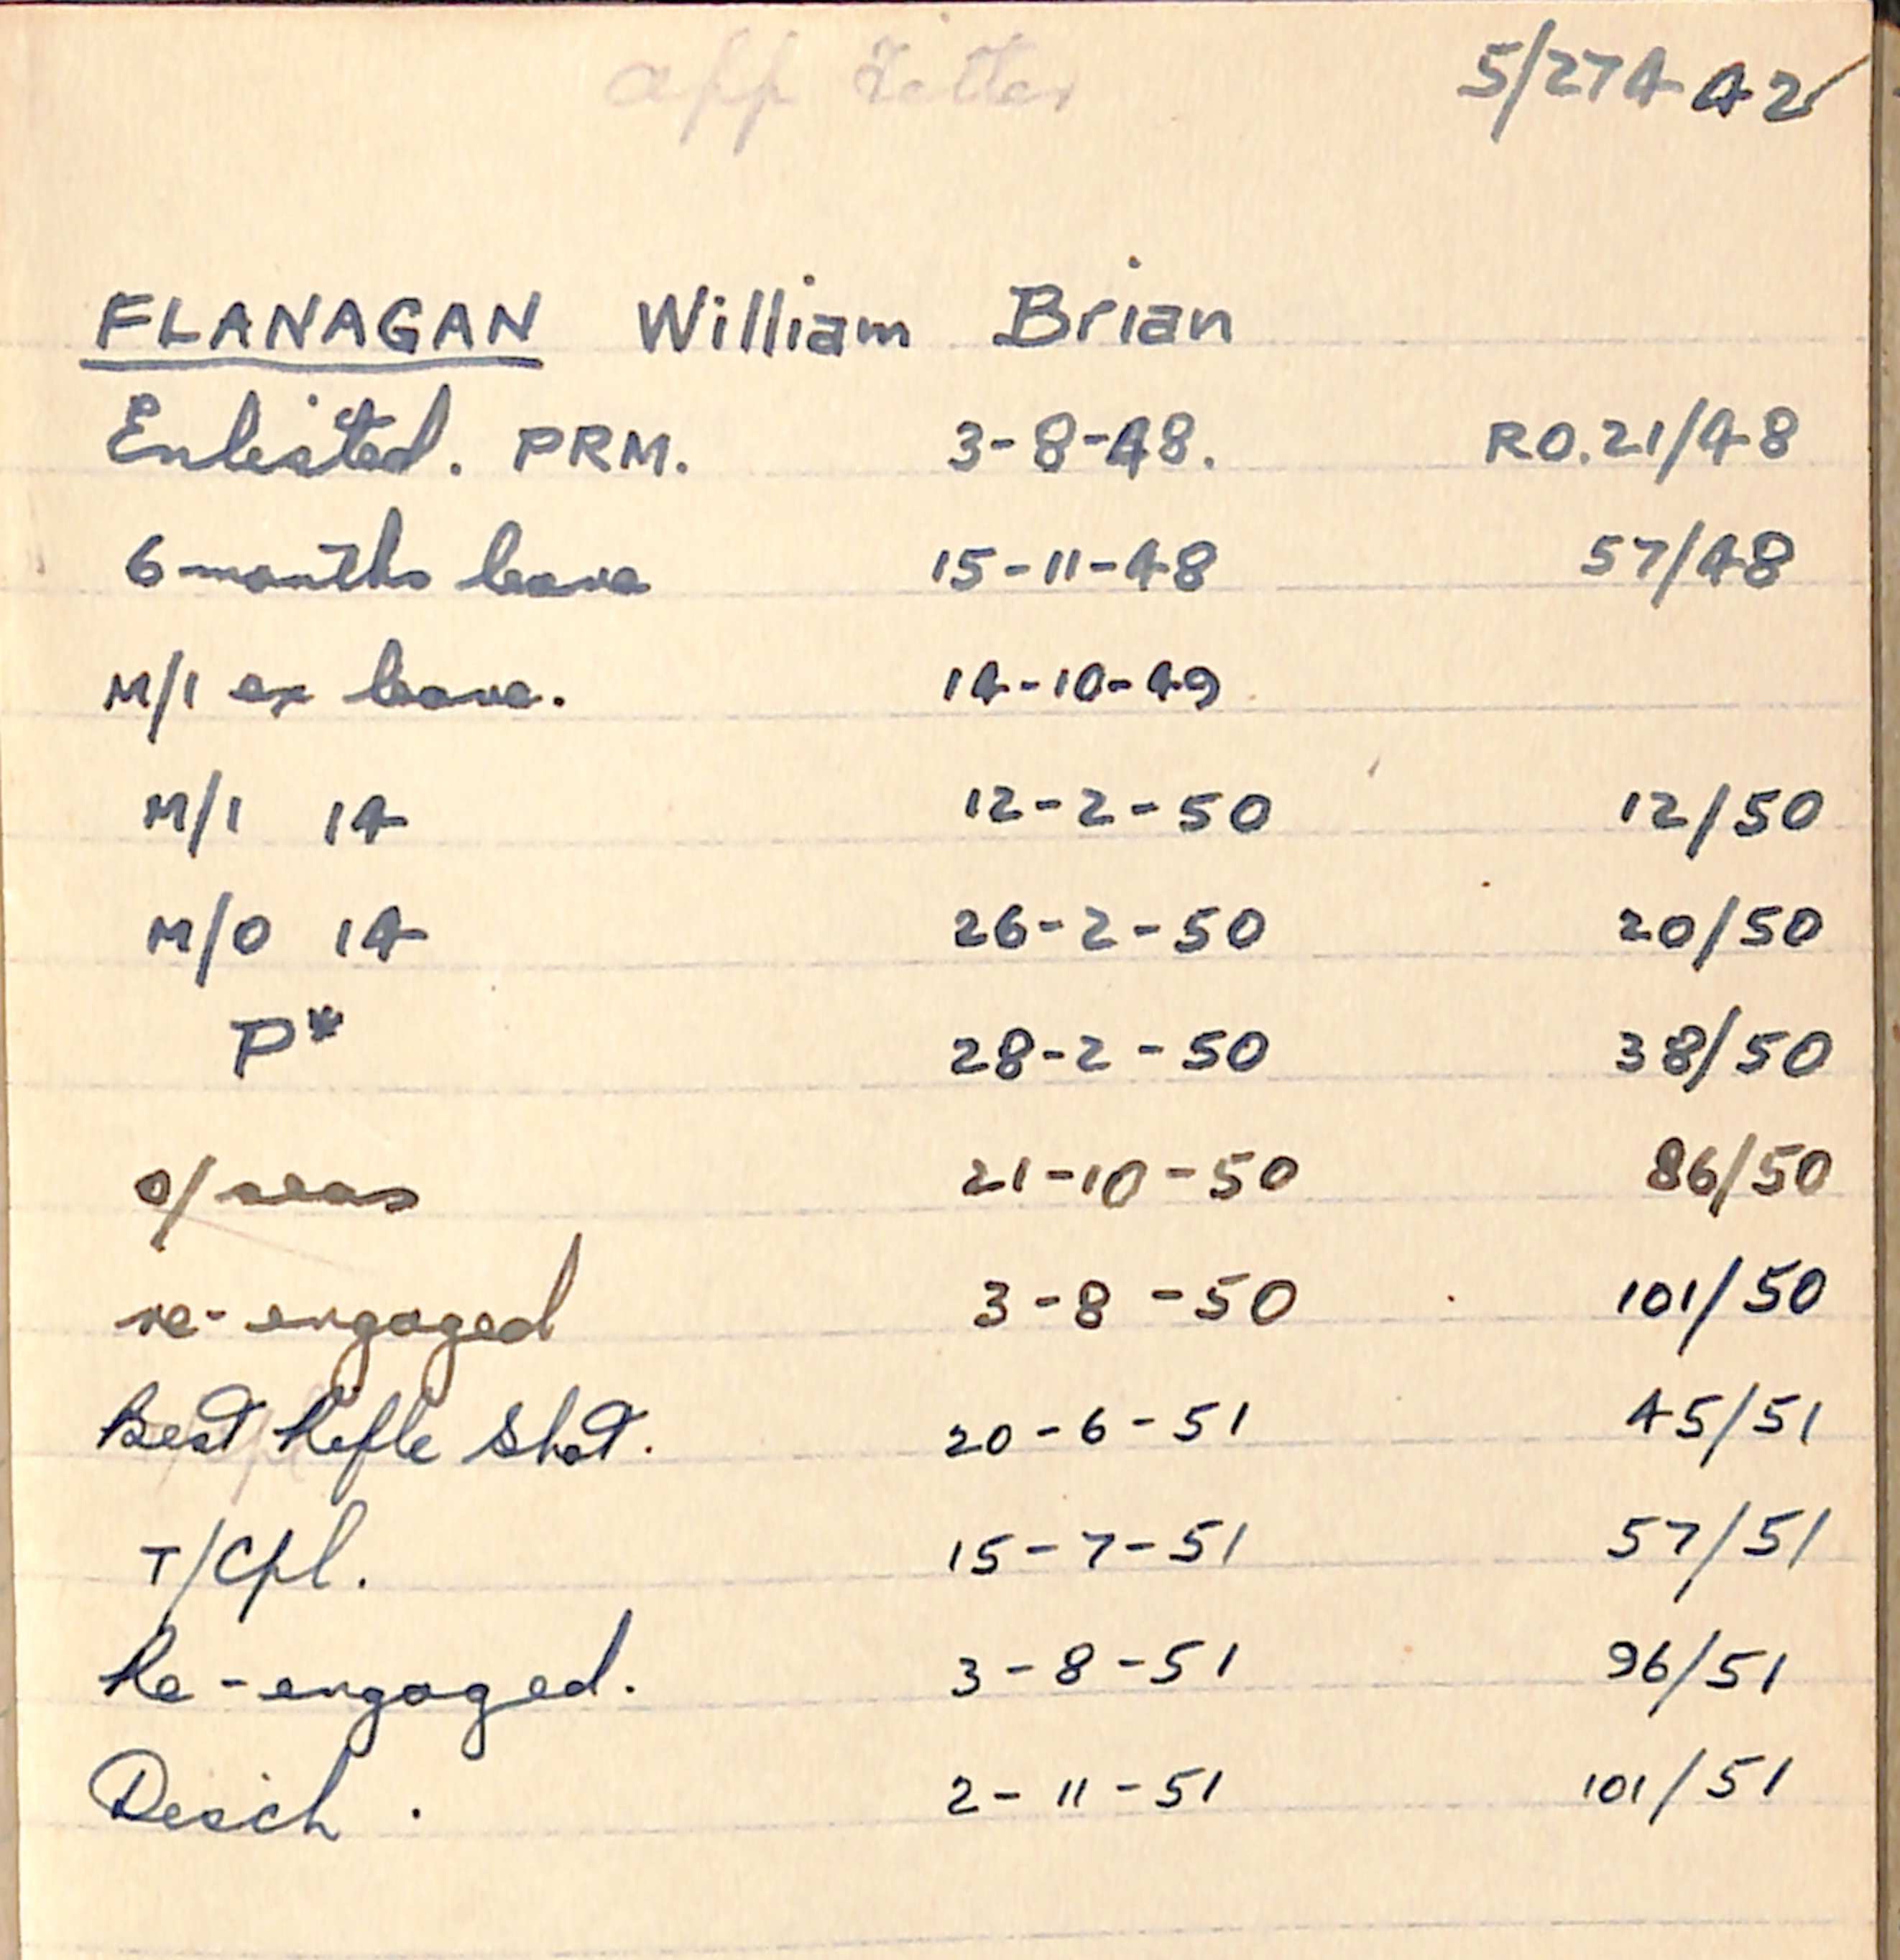 app Fitter 5/27442
FLANAGAN William Brian
Enlisted. PRM. 3-8-48. RO.21/48
6 months leave 15-11-48 57/48
M/I ex leave. 14-10-49
M/I 14 12-2-50 12/50
M/O 14 26-2-50 20/50
P* 28-2-50 38/50
o/seas 21-10-50 86/50
re-engaged 3-8-50 101/50
Best Rifle Shot. 20-6-51 45/51
T/Cpl. 15-7-51 57/51
Re-engaged. 3-8-51 96/51
Disch. 2-11-51 101/51